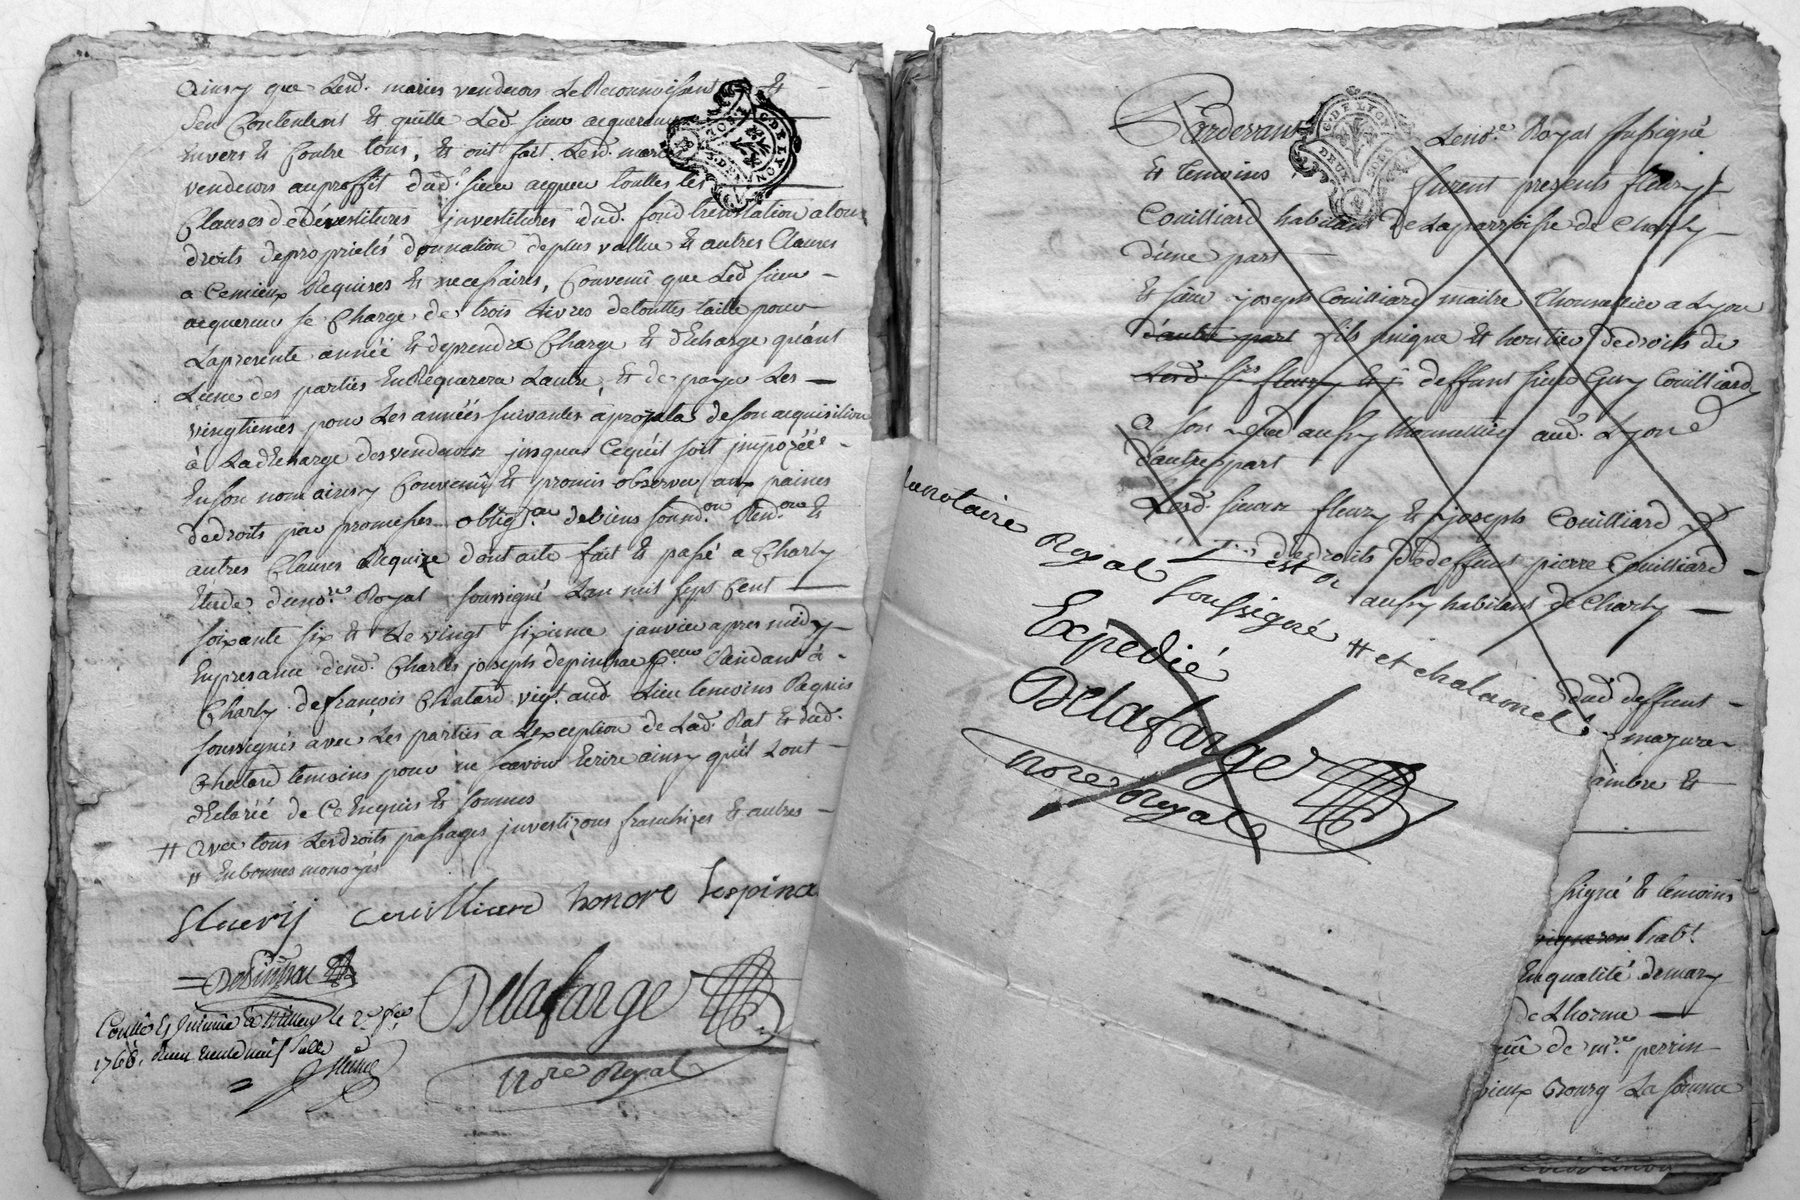 ainsy que Lesd. maries vendeurs Le Reconnoissent Et
Sen Contentent Et quitte Led. sieur acquereur
Envers Et Contre tous, Et ont fait Lesd. maries
vendeurs auproffit dud. sieur acquereur touttes les
Clauses dedévestitures jnvestitures dud. fond translation atous
droits deproprietés donnation deplus vallue Et autres Clauses
a Cemieux Requises Et necessaires, Convenu que Led sieur
acquereur se Charge de trois Livres detouttes taille pour
Lapresente année Et deprendre Charge Et dEcharge quant
Lune des parties EnRequerera Lautre, Et de payer Les
vingtiemes pour Les années suivantes àprorata deson acquisition
à Ladecharge desvendeurs jusquas Cequil soit jmpozéé
Enson nom ainsy Convenu Et promis observer aux paines
dedroits par promesses oblig.on debiens soumd.on Rend.on Et
autres Clauses Requize dont acte fait Et passé a Charly
Etude dunore Royal soussigné Lan mil sept Cent
soixante six Et Le vingt sixieme janvier apres midy
Enpresance desd. Charles joseph depinhac Residant à
Charly defrancois Chatard vig.t aud. Lieu temoins Requis
soussignés avec Les parties a Lexception de Lad. Rat Et dud.
Chatard temoins pour ne scavoir Ecrire ainsy quil Lont
dEclaréé de CeEnquis Et sommes
# avec tous Lesdroits passages jnvestizons franchizes Et autres
# Enbonnes monoyes
fleurij couilliard honore Lespina
Depinhac
Delafarge
nore Royal
Conllé Et Jnsinué à Millery le 2e fev.er
1766.
Pardevant Lenore Royal soussigné
Et temoins furent presents fleury
Couilliard habitant de Laparroisse de Charly
dune part
Et sieur joseph Couilliard maitre Thonnellier a Lyon
d'autre part fils unique Et heritier dedroits de
Lesd. srs fleury Et j deffunt sieur Guy Couilliard
a son aussy thonnellier aud. Lyon
d'autre part
Lesd. sieurs fleury Et joseph Couilliard
dedroits dedeffunt pierre Couilliard
aussy habitant de Charly
dud deffunt
mazure
ambre Et
signé Et temoins
vigneron habt
Enqualité demary
de Lhorme
de mre perrin
vieux Bourg La somme
notaire Royal soussigné # et chalamel
est
Expedié
Delafarge
nore Royal